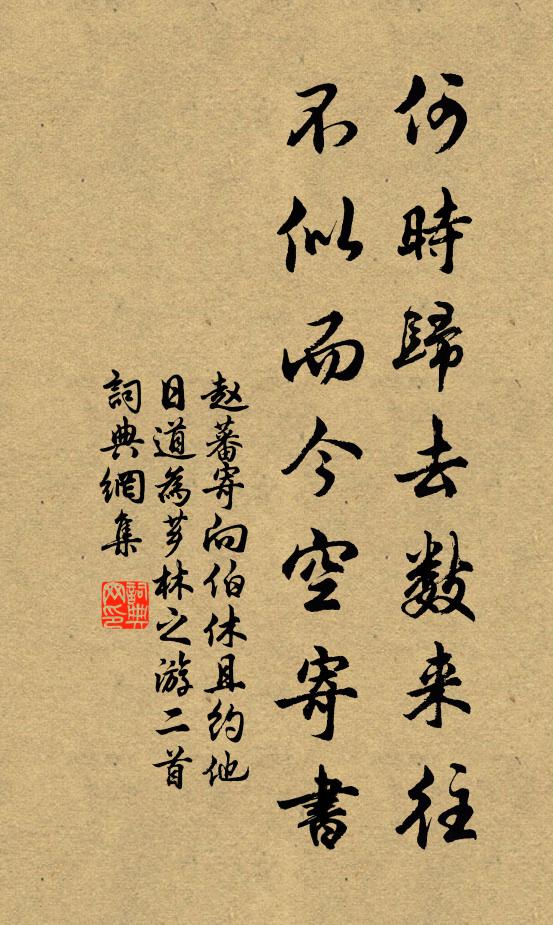 何時歸去數来往
不似而今空寄書
赵蕃寄向伯休且约他
日道為芗林之游二首
詞典網集
詞典網印